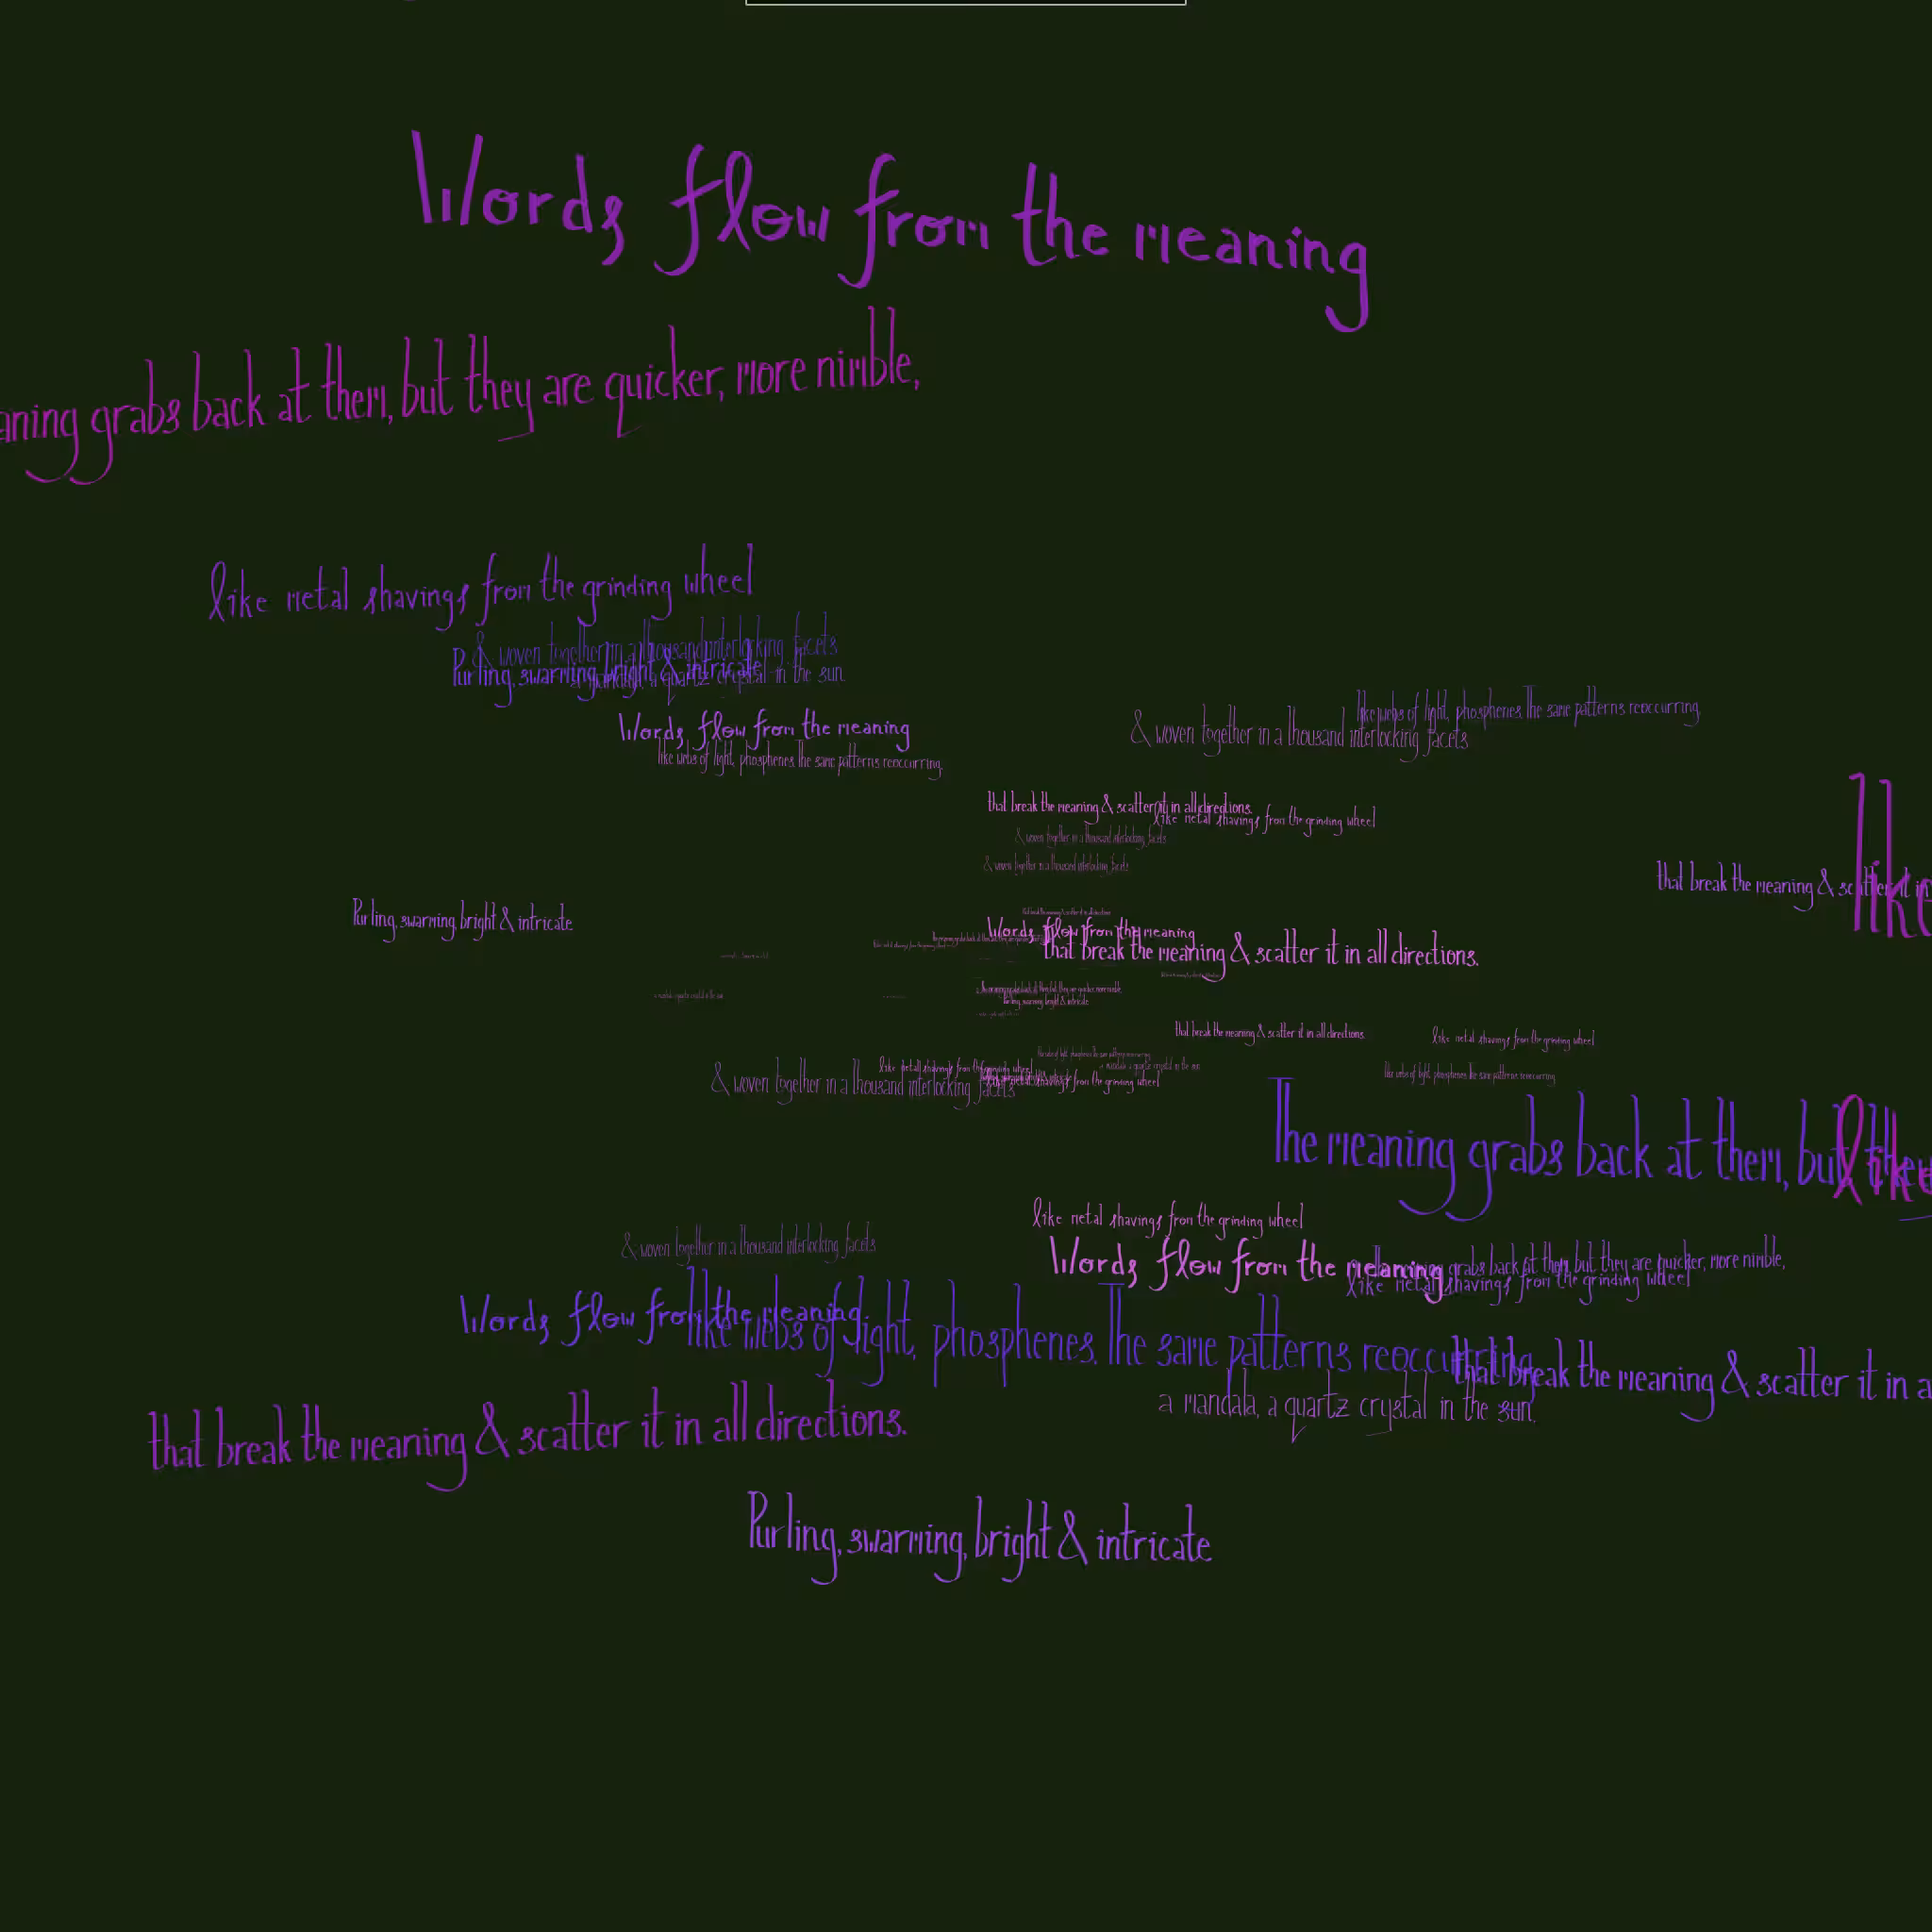 Words flow from the meaning
grabs back at them, but they are quicker, more nimble,
like metal shavings from the grinding wheel
& woven together in a thousand interlocking facets
Purling, swarming, bright & intricate
a quartz crystal in the sun.
like webs of light, phosphenes. The same patterns reoccurring,
& woven together in a thousand interlocking facets
Words flow from the meaning
like webs of light, phosphenes. The same patterns reoccurring,
that break the meaning & scatter it in all directions.
like metal shavings from the grinding wheel
& woven together in a thousand interlocking facets
& woven together in a thousand interlocking facets
like
that break the meaning & scatter it in
Purling, swarming, bright & intricate
Words flow from the meaning
that break the meaning & scatter it in all directions.
Purling, swarming, bright & intricate
that break the meaning & scatter it in all directions.
like metal shavings from the grinding wheel
a mandala, a quartz crystal in the sun.
like metal shavings from the grinding wheel
like webs of light, phosphenes. The same patterns reoccurring,
& woven together in a thousand interlocking facets
like metal shavings from the grinding wheel
The meaning grabs back at them, but they
like
like metal shavings from the grinding wheel
& woven together in a thousand interlocking facets
Words flow from the meaning
grabs back at them, but they are quicker, more nimble,
like metal shavings from the grinding wheel
Words flow from the meaning
like webs of light, phosphenes. The same patterns reoccurring,
that break the meaning & scatter it in
a mandala, a quartz crystal in the sun.
that break the meaning & scatter it in all directions.
Purling, swarming, bright & intricate